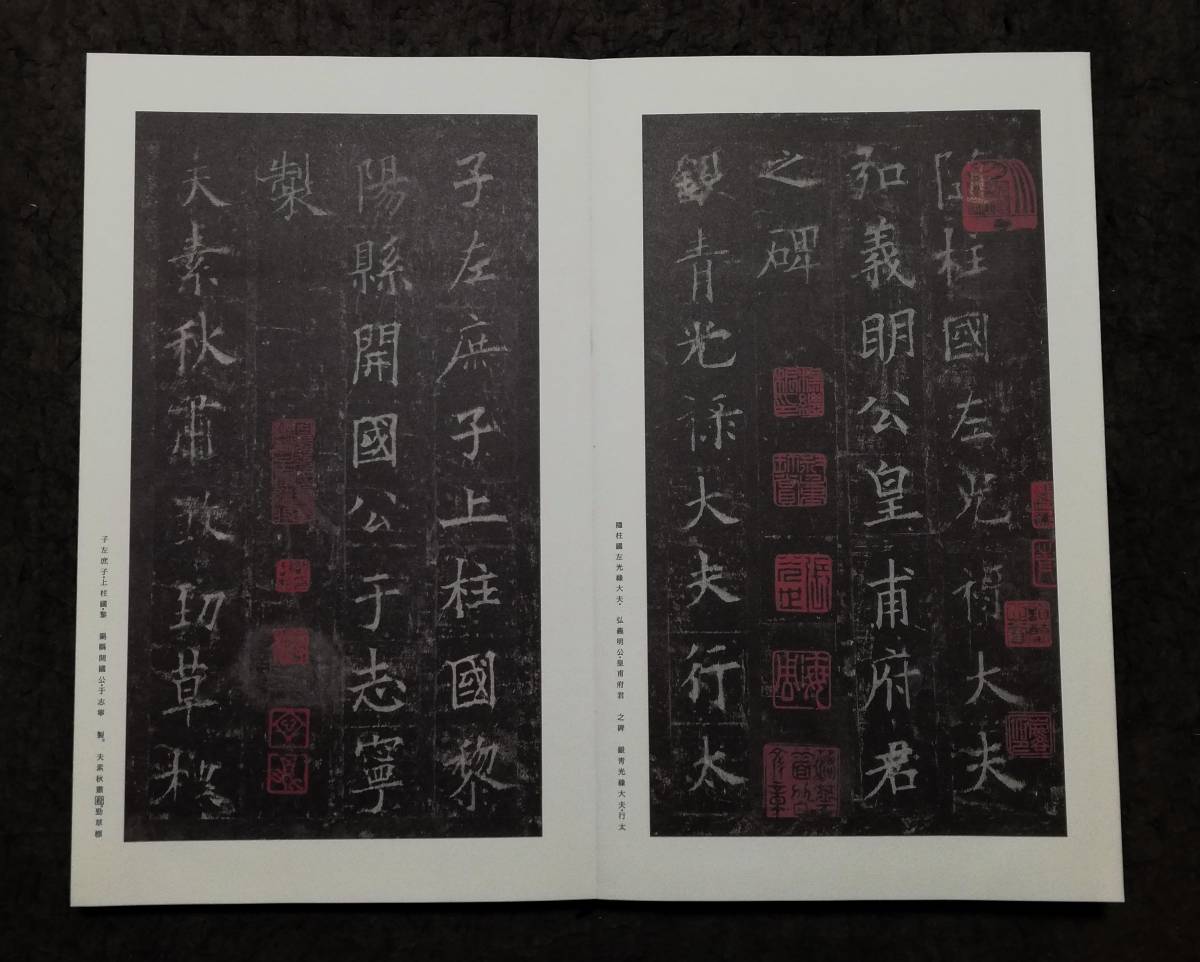 隨柱國左光祿大夫
弘義明公皇甫府君
之碑
銀青光祿大夫行太
隨柱國左光祿大夫・弘義明公・皇甫府君　之碑　銀青光祿大夫・行太
子左庶子上柱國黎
陽縣開國公于志寧
製
夫素秋肅煞勁草標
子左庶子・上柱國・黎　陽縣開國公・于志寧　製。夫素秋肅煞勁草標